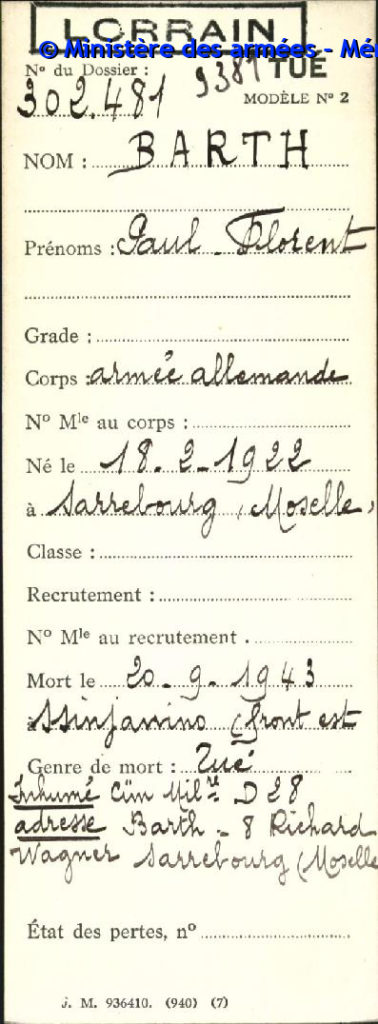 LORRAIN
© Ministère des armées - Mé
N° du Dossier : 9381 TUÉ
302.481 MODÈLE N° 2
NOM : BARTH
Prénoms : Paul - Florent
Grade :
Corps : armée allemande
N° Mle au corps :
Né le 18-2-1922
à Sarrebourg (Moselle)
Classe :
Recrutement :
N° Mle au recrutement .
Mort le 20-9-1943
à Ssinjawino (front est
Genre de mort : Tué
Inhumé Cim Milre D 28
adresse Barth - 8 Richard
Wagner Sarrebourg (Moselle
État des pertes, n°
J. M. 936410. (940) (7)